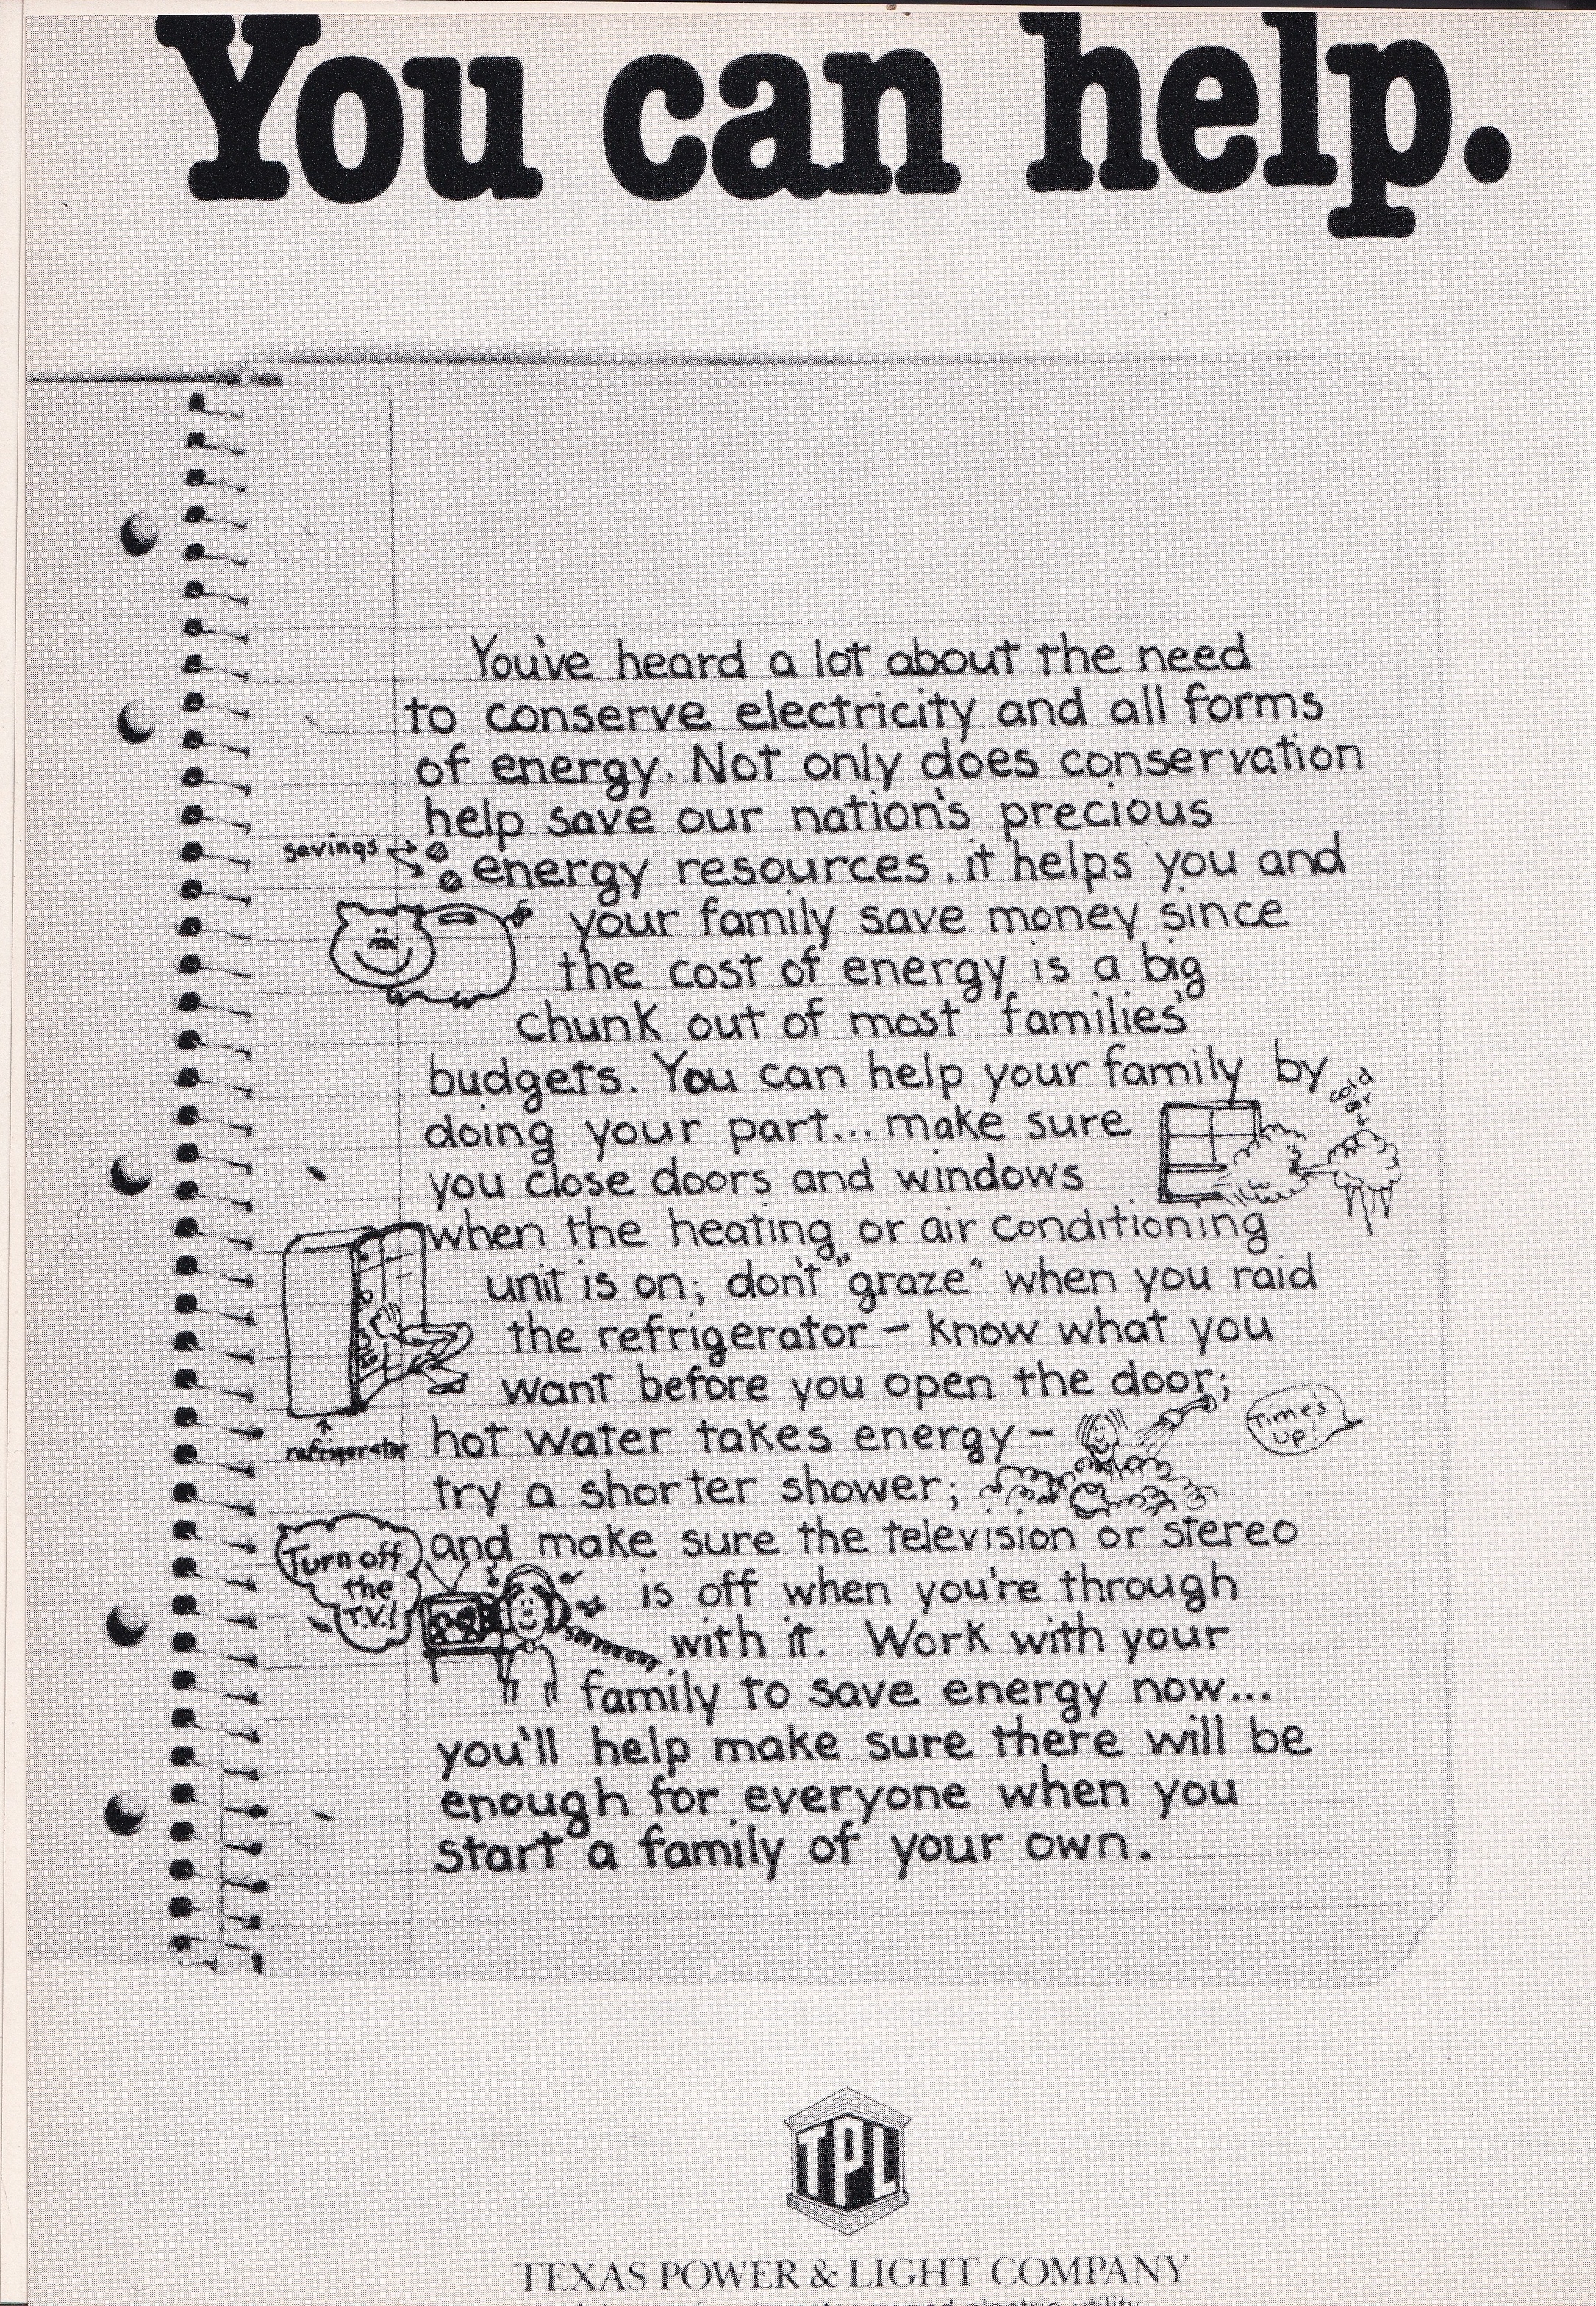 You can help.
You've heard a lot about the need
to conserve electricity and all forms
of energy. Not only does conservation
help save our nation's precious
savings
energy resources, it helps you and
your family save money since
the cost of energy is a big
chunk out of most families'
budgets. You can help your family by
cold
air
doing your part... make sure
you close doors and windows
when the heating or air conditioning
unit is on; don't "graze" when you raid
the refrigerator - know what you
want before you open the door;
Time's
up!
refrigerator
hot water takes energy -
try a shorter shower;
and make sure the television or stereo
Turn off
the
T.V.!
is off when you're through
with it. Work with your
family to save energy now...
you'll help make sure there will be
enough for everyone when you
start a family of your own.
TPL
TEXAS POWER & LIGHT COMPANY
investor-owned electric utility